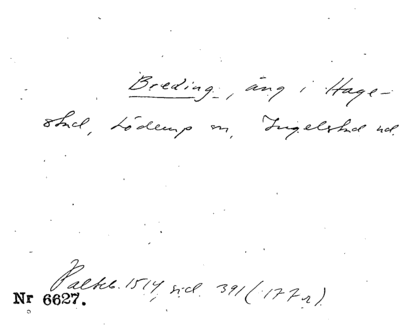 Breding, äng i Hage-
stad, Löderup sn, Ingelstad hd.
Palteb. 1514, sid. 391 (177 r).
Nr 6627.